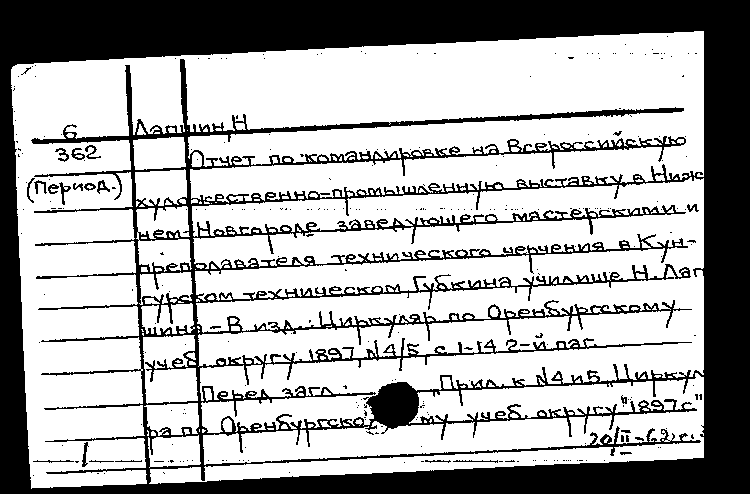 6 Лапшин, Н
362 Отчет по командировке на Всероссийскую
(Период.) художественно-промышленную выставку в Ниж
нем-Новгороде заведующего мастерскими и
преподавателя технического черчения в Кун-
гурском техническом, Губкина, училище Н. Лап
шина - В изд.: Циркуляр по Оренбургскому
учеб. округу. 1897, №4/5, с 1-14 2-й паг.
Перед загл.: „Прил. к №4 и 5 „Циркул
ра по Оренбургскому учеб. округу" 1897 г"
1 20/II-62